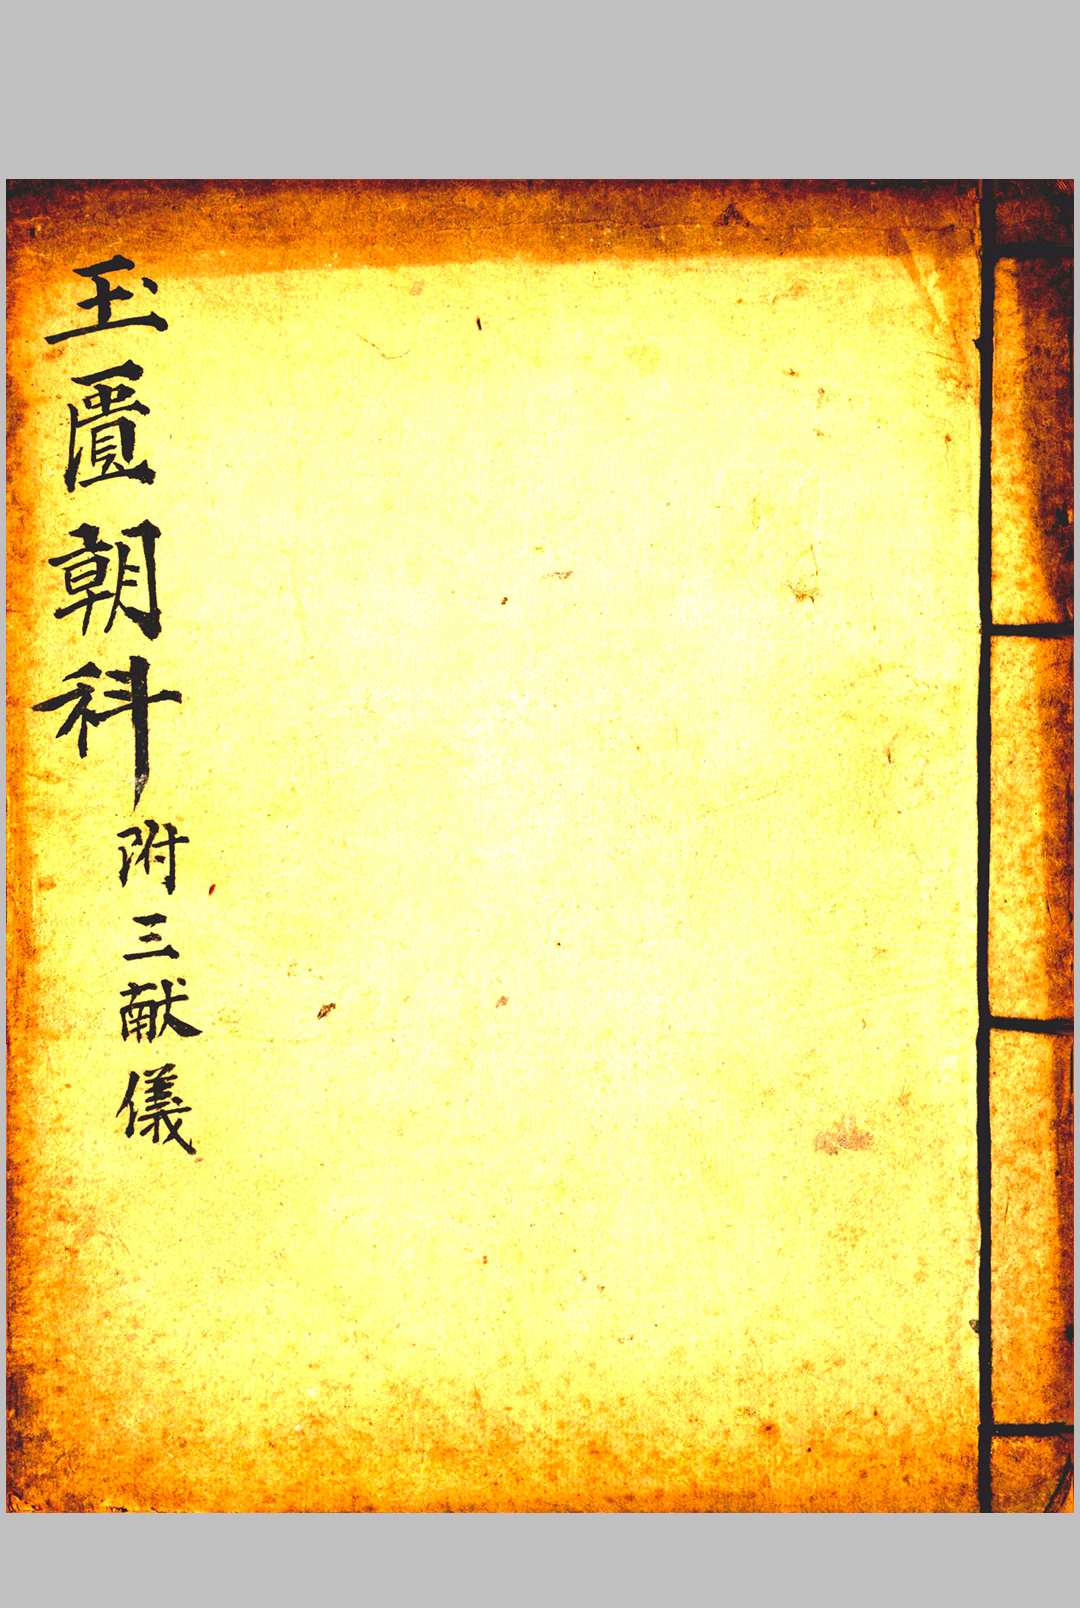 玉匱朝科
附三献儀